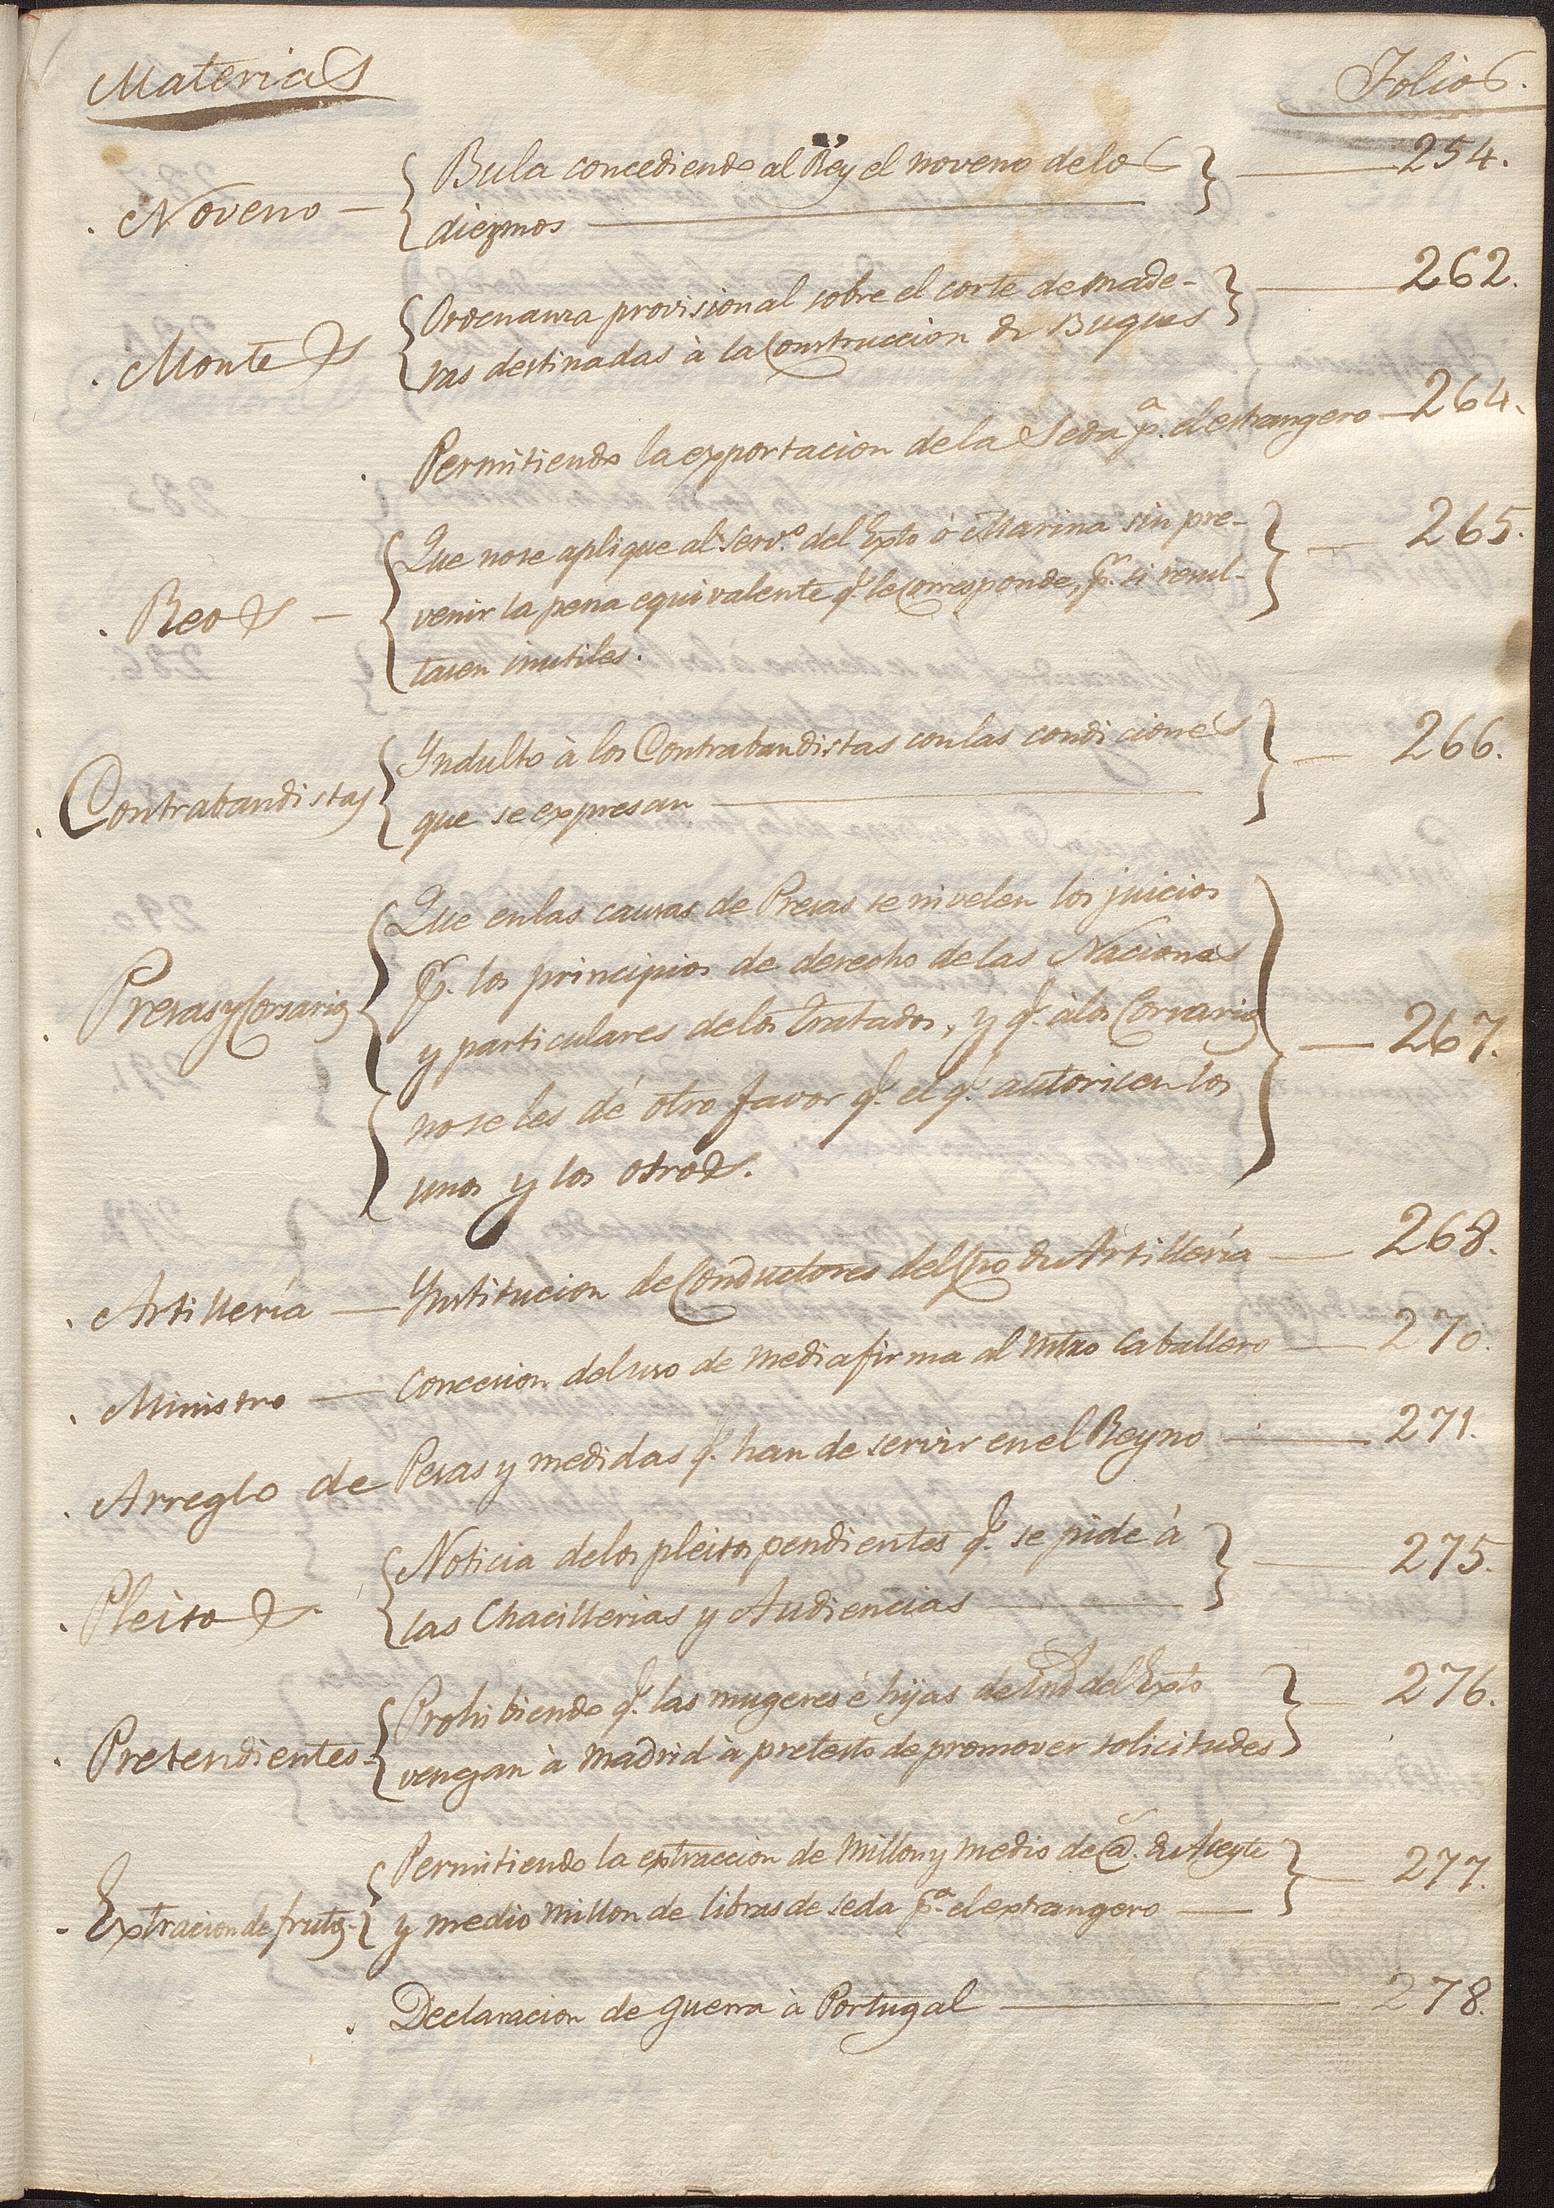 Materias Folios.
Bula concediendo al Rey el noveno de los 254.
. Noveno — diezmos
Ordenanza provisional sobre el corte de made- 262.
. Montes ras destinadas à la Construccion de Buques
. Permitiendo la exportacion de la Seda p.a el estrangero — 264.
Que no se aplique al Serv.o del Exto ó Marina sin pre- — 265.
. Reos — venir la pena equivalente q.e le corresponde, p.r si resul-
tasen inutiles.
Yndulto à los Contrabandistas con las condiciones — 266.
. Contrabandistas que se expresan
Que en las causas de Presas se nivelen los juicios
. Presas y Corsarios p.r los principios de derecho de las Naciones
y particulares de los tratados, y q.e à los Corsarios — 267.
no se les dé otro favor q.e el q.e autoricen los
unos y los otros.
. Artillería — Ynstitucion de Conductores del Cpo de Artillería — 268.
. Ministro — Concesion del uso de media firma al Mtro Caballero — 270.
. Arreglo de Pesas y medidas q.e han de servir en el Reyno — 271.
Noticia de los pleitos pendientes q.e se pide à — 275.
. Pleitos. las Chacillerias y Audiencias
Prohibiendo q.e las mugeres é hijas de Ind.s del Exto — 276.
. Pretendientes- vengan à Madrid à pretesto de promover solicitudes
Permitiendo la extraccion de Millon y medio de @. de Aseyte — 277.
- Extracion de frutos- y medio millon de libras de seda p.a el extrangero —
. Declaracion de guerra à Portugal — 278.